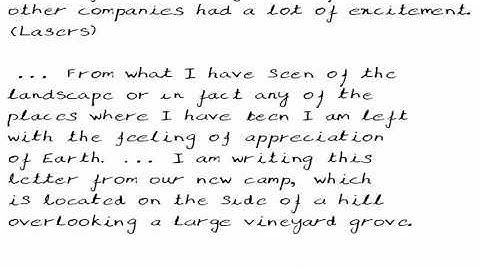 other companies had a lot of excitement.
(Lasers)
... From what I have seen of the
landscape or in fact any of the
places where I have been I am left
with the feeling of appreciation
of Earth. ... I am writing this
letter from our new camp, which
is located on the side of a hill
overlooking a large vineyard grove.